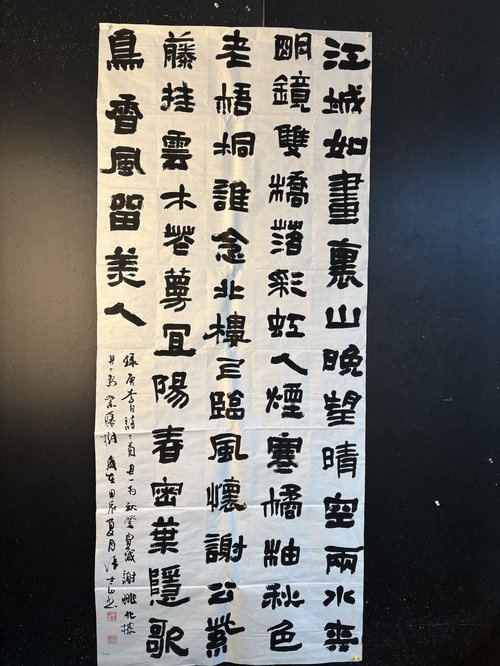 江城如畫裏山晚望晴空兩水夾
明鏡雙橋落彩虹人煙寒橘柚秋色
老梧桐誰念北樓上臨風懷謝公紫
藤挂雲木花蔓宜陽春密葉隱歌
鳥香風留美人
錄唐李白詩二首其一為秋登宣城謝朓北樓
其二為紫藤樹 歲在甲辰夏月